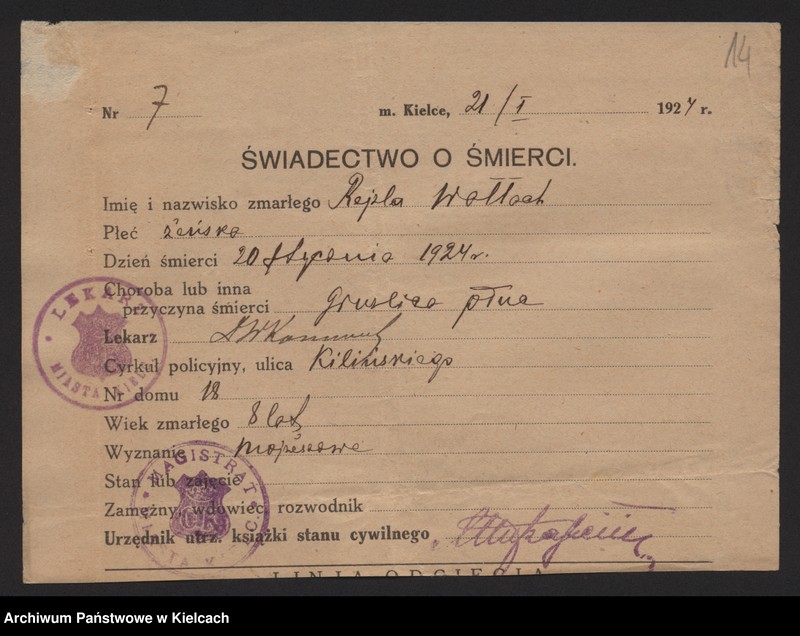 14
Nr 7 m. Kielce, 21/I 1924 r.
ŚWIADECTWO O ŚMIERCI.
Imię i nazwisko zmarłego Rejzla Wołłoch
Płeć żeńska
Dzień śmierci 20 stycznia 1924 r.
Choroba lub inna
przyczyna śmierci gruźlica płuc
Lekarz
Cyrkuł policyjny, ulica Kilińskiego
Nr domu 18
Wiek zmarłego 8 lat
Wyznanie mojżeszowe
Stan lub zajęcie
Zamężny, wdowiec, rozwodnik
Urzędnik utrz. książki stanu cywilnego
LINJA ODCIĘCIA
LEKARZ MIASTA KIELC
MAGISTRAT MIASTA KIELC
CK
Archiwum Państwowe w Kielcach